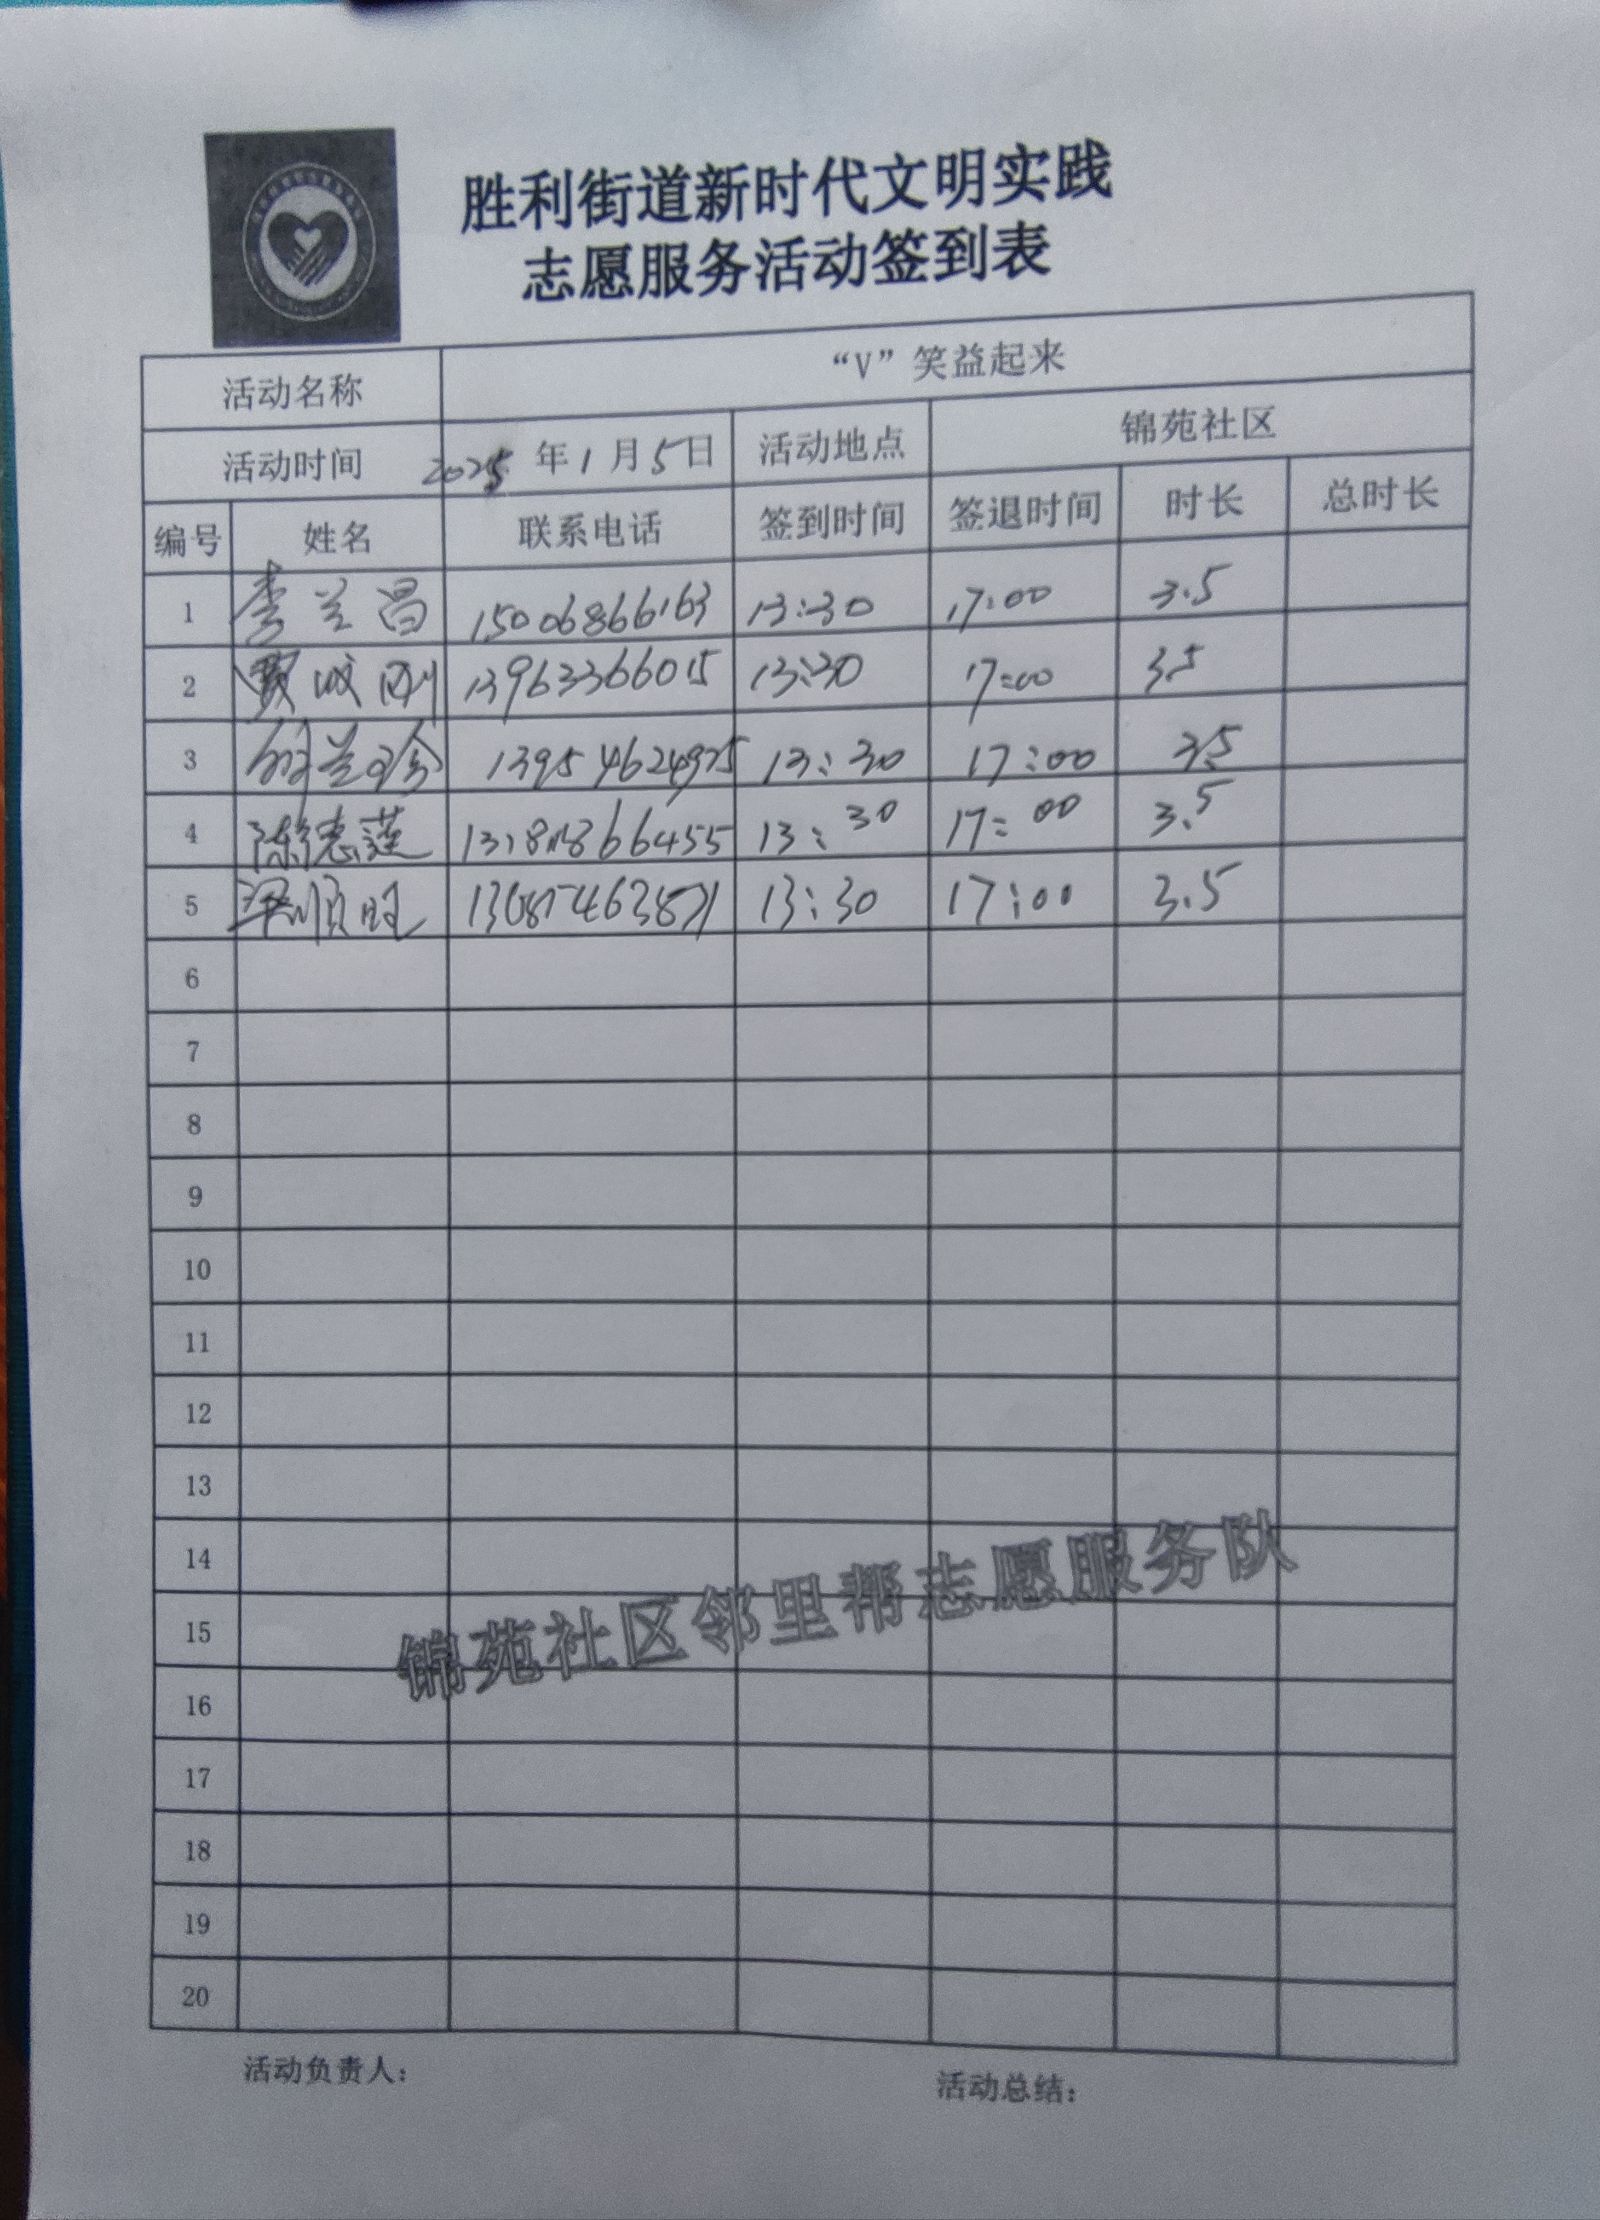 胜利街道新时代文明实践
志愿服务活动签到表
活动名称 “V”笑益起来
活动时间 2025年1月5日 活动地点 锦苑社区
编号 姓名 联系电话 签到时间 签退时间 时长 总时长
1 李兰昌 15006866163 13:30 17:00 3.5
2 贾成刚 13963366015 13:30 17:00 3.5
3 兰珍 13954624975 13:30 17:00 3.5
4 陈德莲 13:30 17:00 3.5
5 梁顺旺 13:30 17:00 3.5
6
7
8
9
10
11
12
13
14
15
16
17
18
19
20
锦苑社区邻里帮志愿服务队
活动负责人: 活动总结: